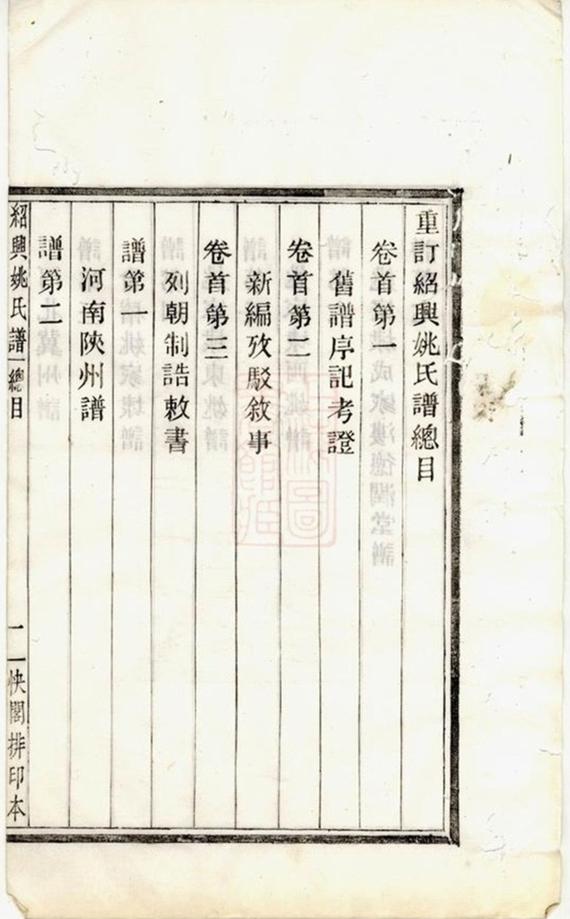 重訂紹興姚氏譜總目
卷首第一
舊譜序記考證
卷首第二
新編攷駁敘事
卷首第三
列朝制誥敕書
譜第一
河南陝州譜
譜第二
紹興姚氏譜 總目
一
快閣排印本